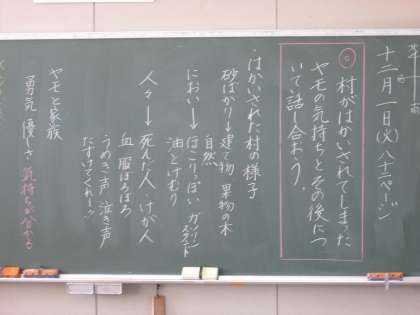 十二月一日(火)八十二ページ
◎村がはかいされてしまった
ヤモの気持ちとその後につ
いて話し合おう。
・はかいされた村の様子
砂ばかり→建て物 果物の木
自然
におい→ほこりっぽい ガソリン
油とけむり
人々→死んだ人 けが人
血 服ぼろぼろ
うめき声 泣き声
たすけてくれー!
ヤモと家族
勇気 優しさ 気持ちが分かる